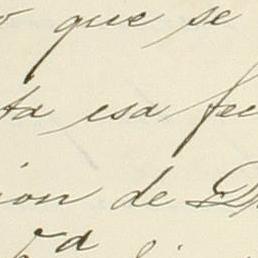 o que se
ta esa fe
ion de D